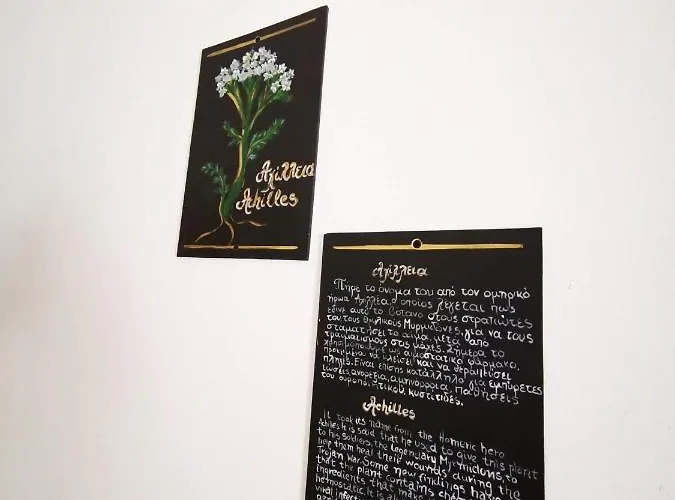 Αχίλλεια
Achilles
Αχίλλεια
Πήρε το όνομα του από τον ομηρικό
ήρωα Αχιλλέα ο οποίος λέγεται πως
έδινε αυτό το βότανο στους στρατιώτες
του τους θρυλικούς Μυρμιδόνες, για να τους
σταματήσει το αίμα μετά από
τραυματισμούς στις μάχες. Σήμερα το
χρησιμοποιούν ως αιμοστατικό φάρμακο,
προκειμένου να κλείσει και να θεραπεύσει
πληγές. Είναι επίσης κατάλληλο για εμπύρετες
ιώσεις, ανορεξία, αμηνόρροια, παθήσεις
του ουροποιητικού, κυστίτιδες.
Achilles
It took its name from the Homeric hero
Achilles. It is said that he used to give this plant
to his soldiers, the legendary Myrmidons, to
help them heal their wounds during the
Trojan War. Some new findings have
that the plant contains
ingredients that make
hemostatic. It is
viral infe